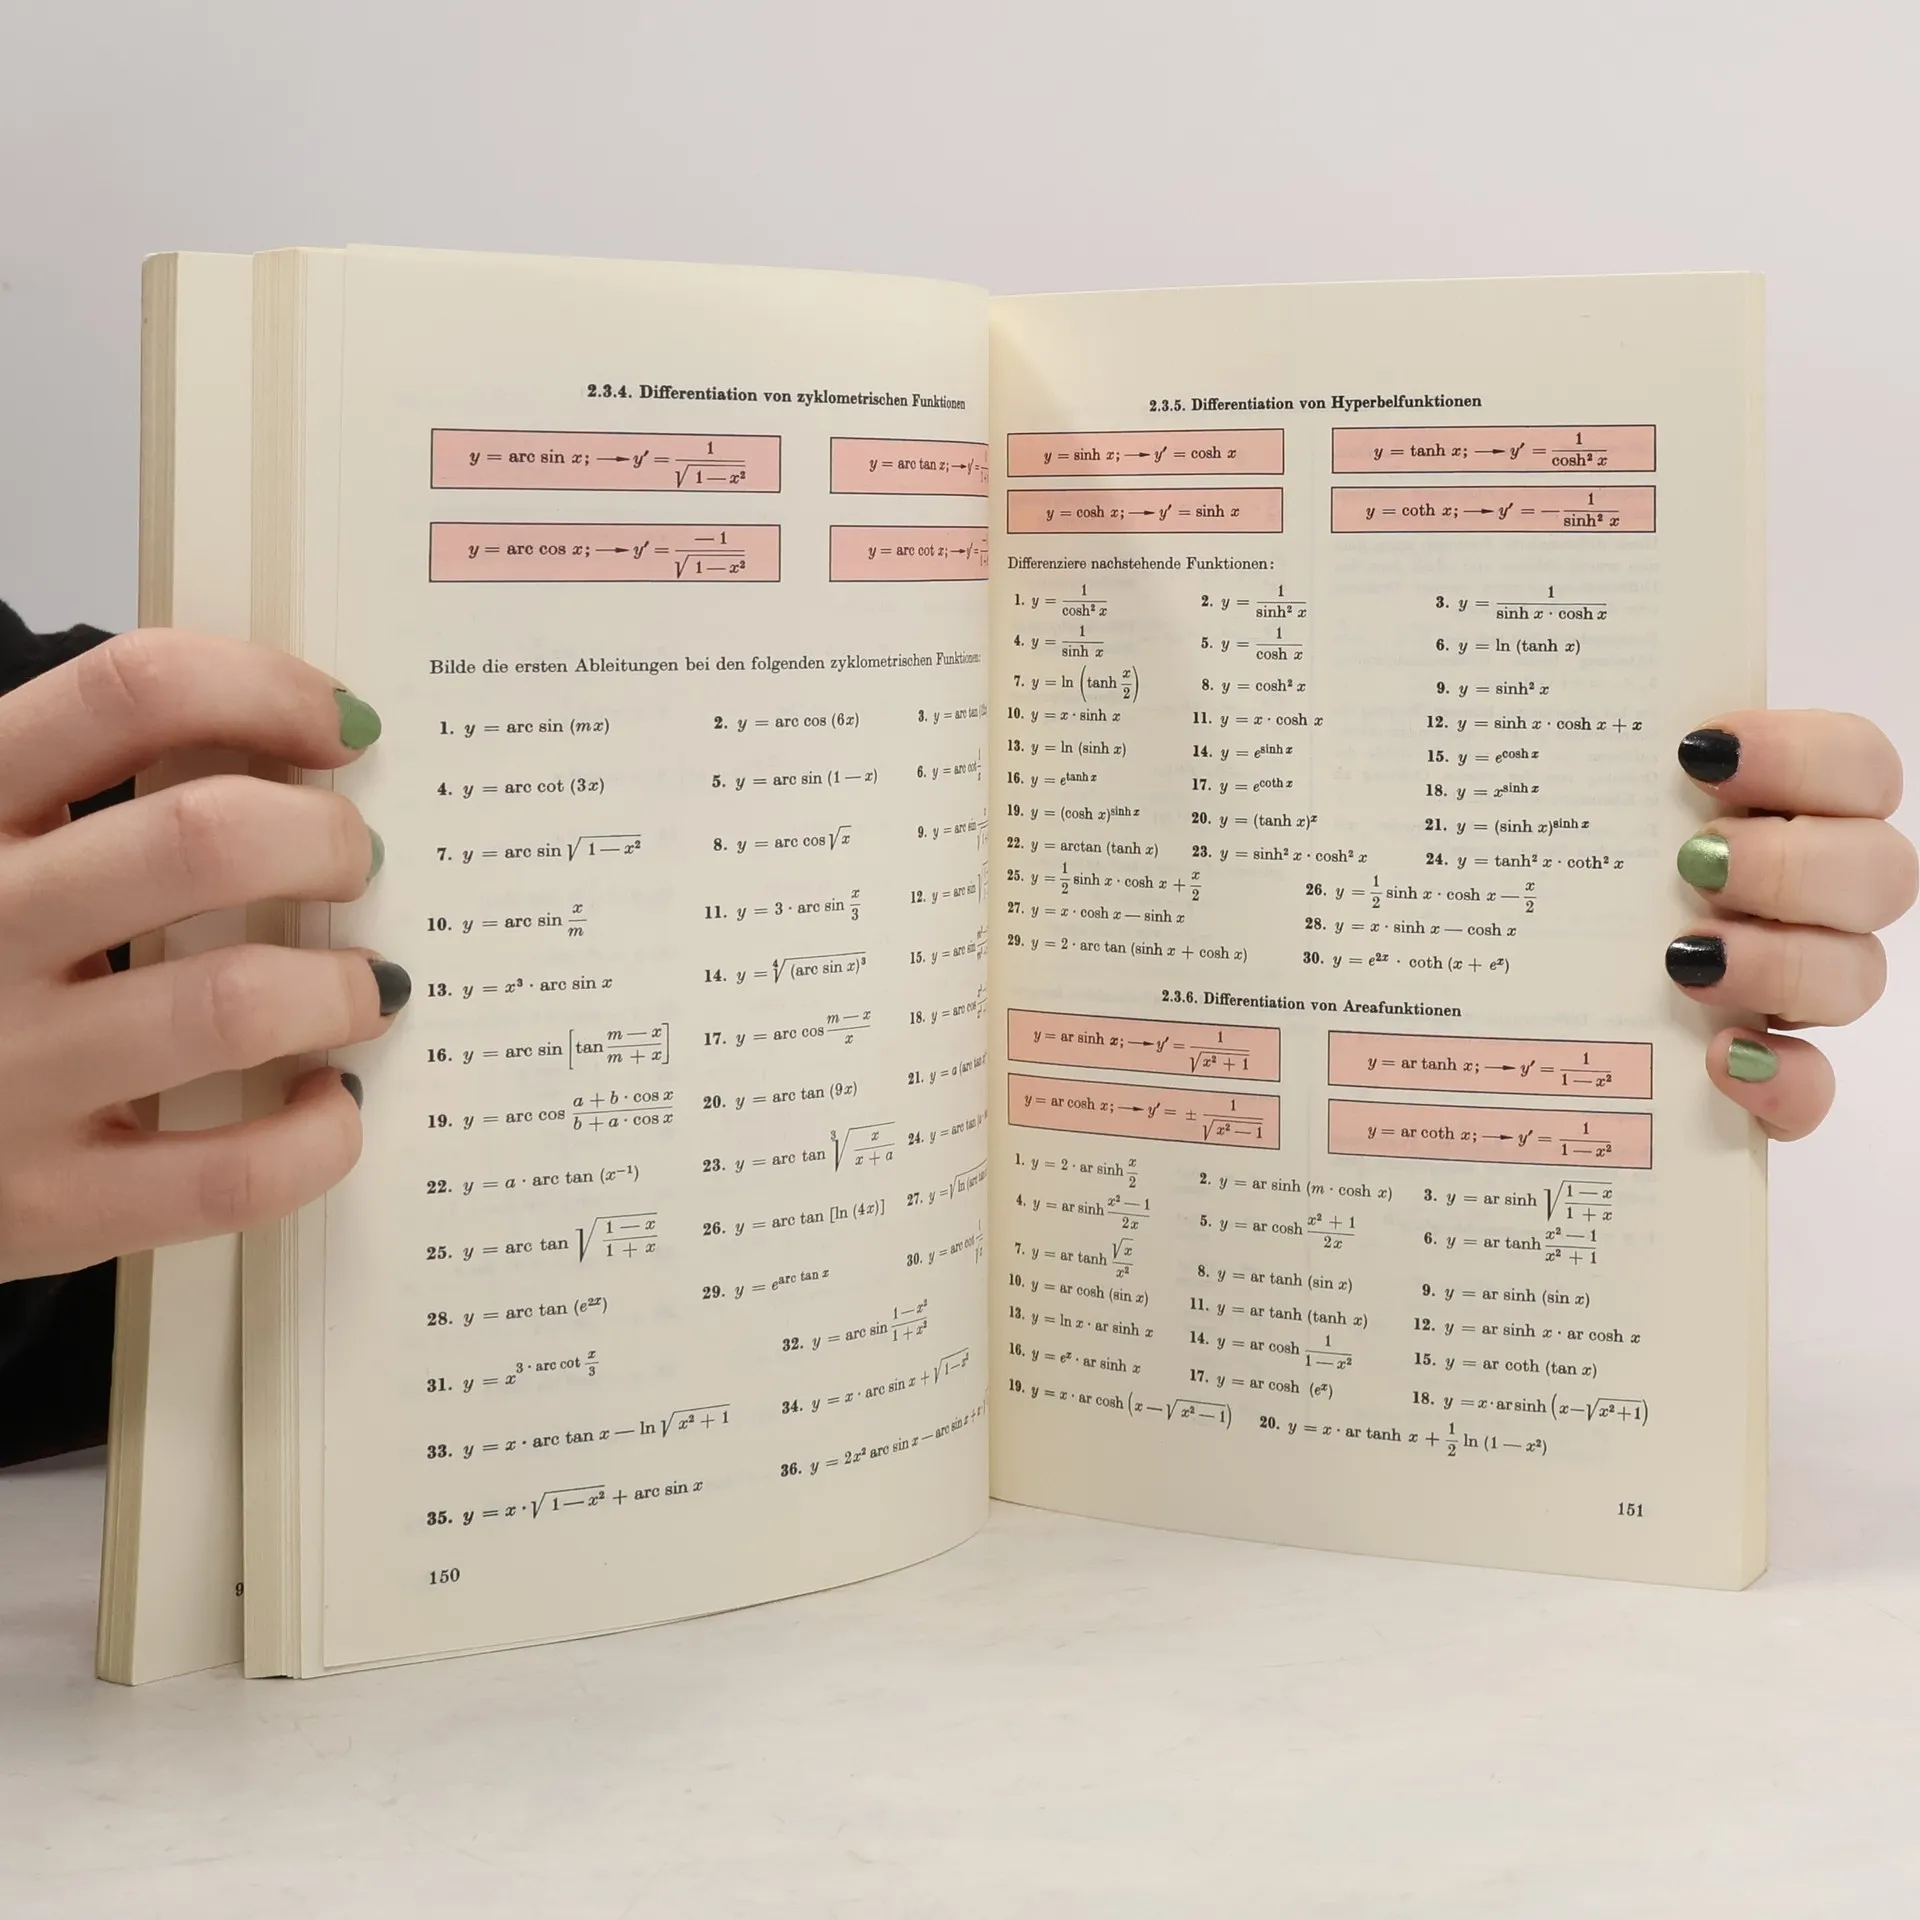 2.3.4. Differentiation von zyklometrischen Funktionen
y = arc sin x; → y′ = 1/√(1 — x²)
y = arc tan x; → y′ =
y = arc cos x; → y′ = — 1/√(1 — x²)
y = arc cot x; → y′ =
Bilde die ersten Ableitungen bei den folgenden zyklometrischen Funktionen:
1. y = arc sin (mx) 2. y = arc cos (6x) 3. y = arc tan
4. y = arc cot (3x) 5. y = arc sin (1 — x) 6. y = arc cot
7. y = arc sin √(1 — x²) 8. y = arc cos √x 9. y = arc sin
10. y = arc sin x/m 11. y = 3 · arc sin x/3 12. y = arc sin
13. y = x³ · arc sin x 14. y = ⁴√((arc sin x)³) 15. y = arc sin
16. y = arc sin [tan (m — x)/(m + x)] 17. y = arc cos (m — x)/x 18. y = arc cos
19. y = arc cos (a + b · cos x)/(b + a · cos x) 20. y = arc tan (9x) 21. y = a (arc tan
22. y = a · arc tan (x⁻¹) 23. y = arc tan ³√(x/(x + a)) 24. y = arc tan
25. y = arc tan √((1 — x)/(1 + x)) 26. y = arc tan [ln (4x)] 27. y = √ln (arc
28. y = arc tan (e²ˣ) 29. y = e^(arc tan x) 30. y = arc cot
31. y = x^(3 · arc cot x/3) 32. y = arc sin (1 — x²)/(1 + x²)
33. y = x · arc tan x — ln √(x² + 1) 34. y = x · arc sin x + √(1 — x²)
35. y = x · √(1 — x²) + arc sin x 36. y = 2x² arc sin x — arc sin x + x √
150
9
2.3.5. Differentiation von Hyperbelfunktionen
y = sinh x; → y′ = cosh x
y = tanh x; → y′ = 1/cosh² x
y = cosh x; → y′ = sinh x
y = coth x; → y′ = — 1/sinh² x
Differenziere nachstehende Funktionen:
1. y = 1/cosh² x 2. y = 1/sinh² x 3. y = 1/(sinh x · cosh x)
4. y = 1/sinh x 5. y = 1/cosh x 6. y = ln (tanh x)
7. y = ln (tanh x/2) 8. y = cosh² x 9. y = sinh² x
10. y = x · sinh x 11. y = x · cosh x 12. y = sinh x · cosh x + x
13. y = ln (sinh x) 14. y = e^(sinh x) 15. y = e^(cosh x)
16. y = e^(tanh x) 17. y = e^(coth x) 18. y = x^(sinh x)
19. y = (cosh x)^(sinh x) 20. y = (tanh x)ˣ 21. y = (sinh x)^(sinh x)
22. y = arctan (tanh x) 23. y = sinh² x · cosh² x 24. y = tanh² x · coth² x
25. y = 1/2 sinh x · cosh x + x/2 26. y = 1/2 sinh x · cosh x — x/2
27. y = x · cosh x — sinh x 28. y = x · sinh x — cosh x
29. y = 2 · arc tan (sinh x + cosh x) 30. y = e²ˣ · coth (x + eˣ)
2.3.6. Differentiation von Areafunktionen
y = ar sinh x; → y′ = 1/√(x² + 1)
y = ar tanh x; → y′ = 1/(1 — x²)
y = ar cosh x; → y′ = ± 1/√(x² — 1)
y = ar coth x; → y′ = 1/(1 — x²)
1. y = 2 · ar sinh x/2 2. y = ar sinh (m · cosh x) 3. y = ar sinh √((1 — x)/(1 + x))
4. y = ar sinh (x² — 1)/2x 5. y = ar cosh (x² + 1)/2x 6. y = ar tanh (x² — 1)/(x² + 1)
7. y = ar tanh √x/x² 8. y = ar tanh (sin x) 9. y = ar sinh (sin x)
10. y = ar cosh (sin x) 11. y = ar tanh (tanh x) 12. y = ar sinh x · ar cosh x
13. y = ln x · ar sinh x 14. y = ar cosh 1/(1 — x²) 15. y = ar coth (tan x)
16. y = eˣ · ar sinh x 17. y = ar cosh (eˣ) 18. y = x · ar sinh (x — √(x² + 1))
19. y = x · ar cosh (x — √(x² — 1)) 20. y = x · ar tanh x + 1/2 ln (1 — x²)
151